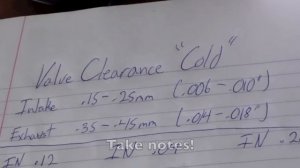 Valve Clearance "Cold"
Intake .15-.25mm (.006-.010")
Exhaust .35-.45mm (.014-.018")
Take notes!
IN .12 IN IN .2